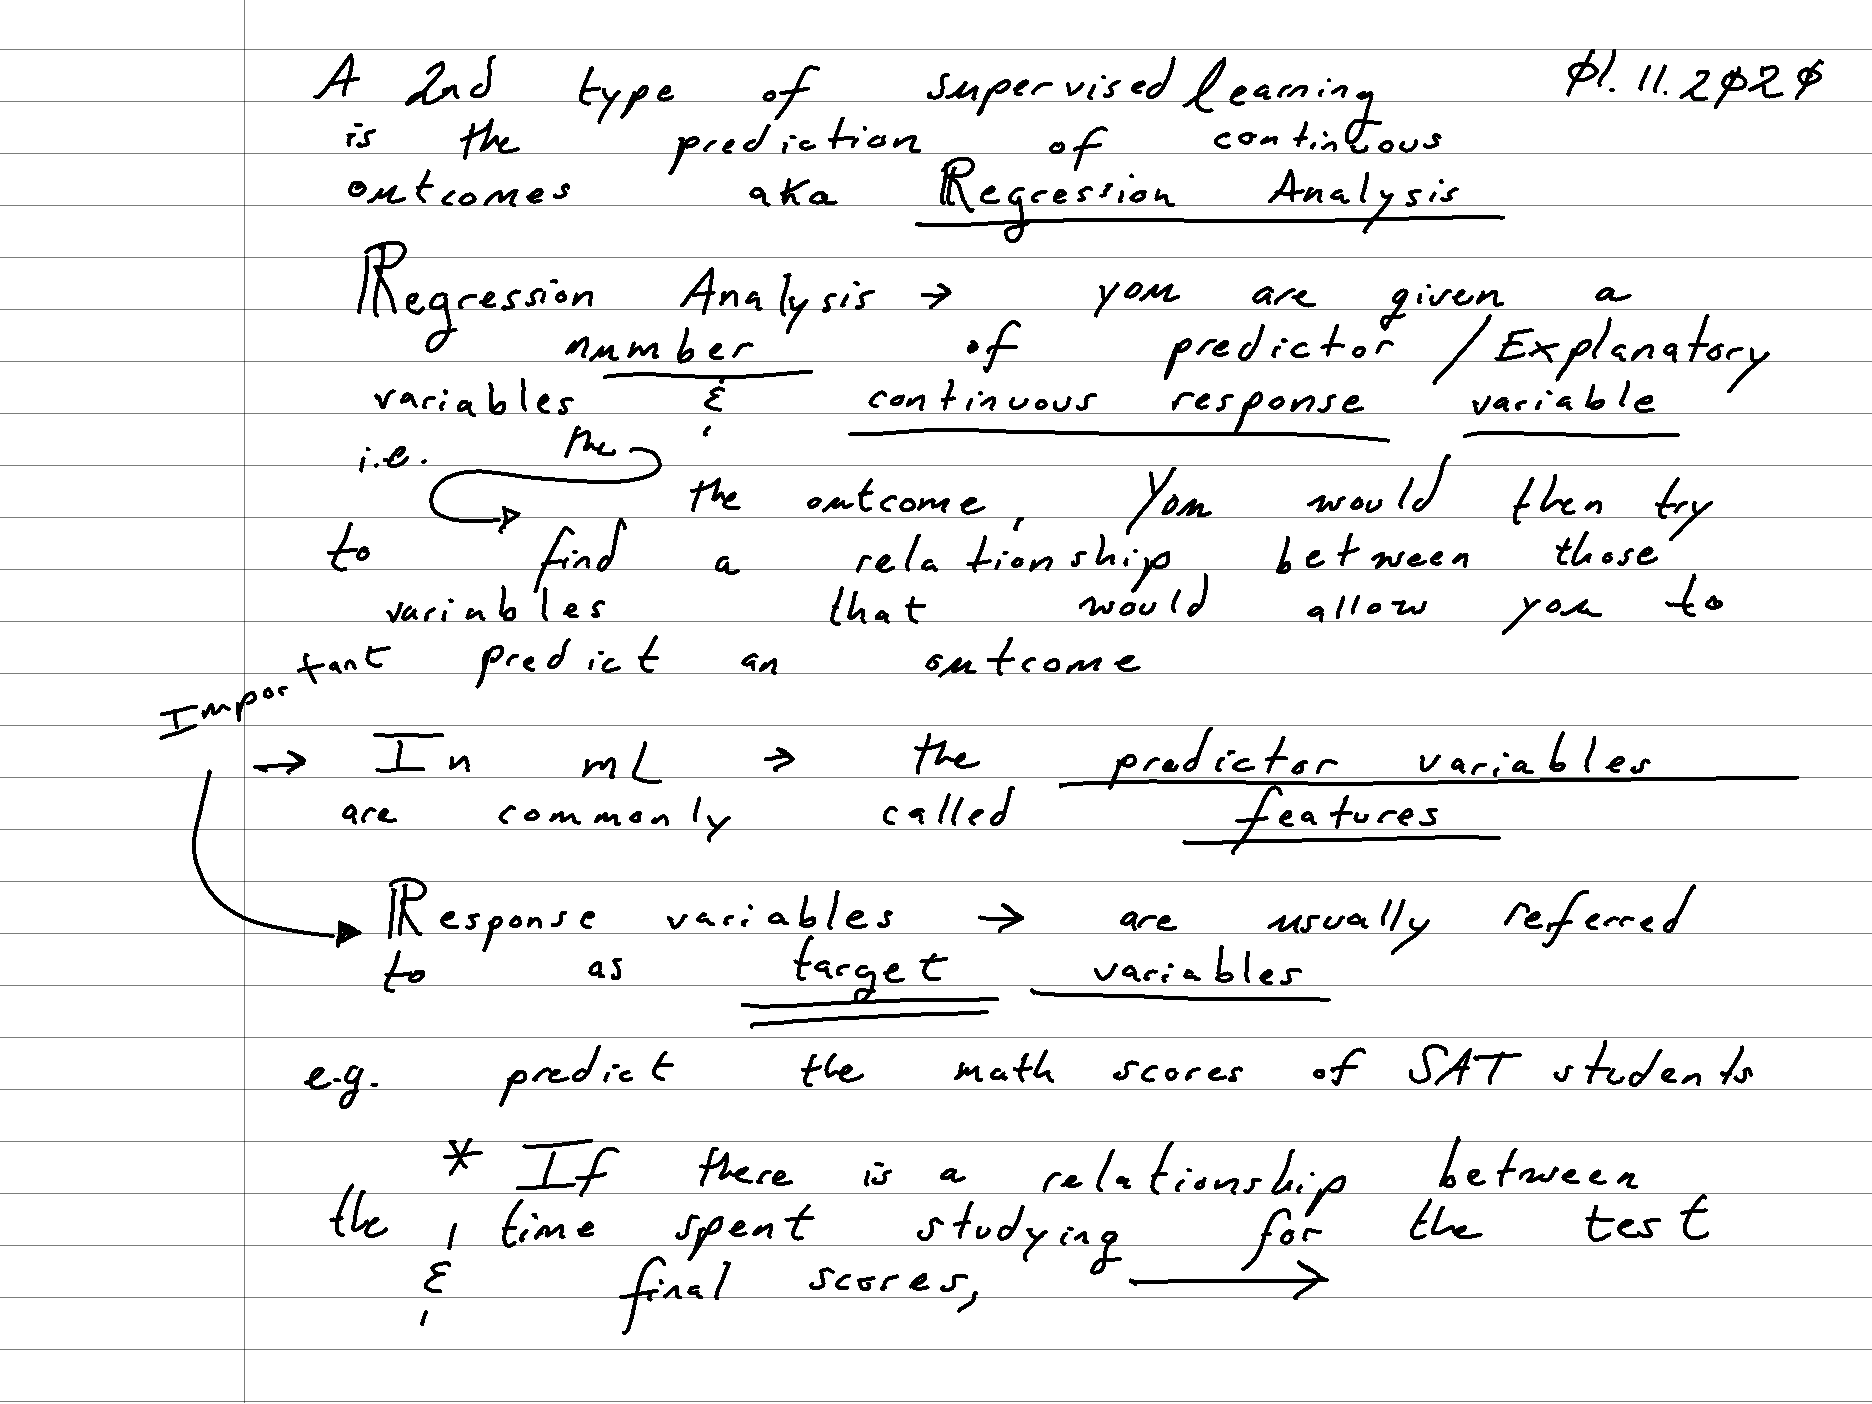 A 2nd type of supervised learning 01.11.2020
is the prediction of continuous
outcomes aka Regression Analysis
Regression Analysis → you are given a
number of predictor / Explanatory
variables & continuous response variable
i.e. the
the outcome, You would then try
to find a relationship between those
variables that would allow you to
predict an outcome
Important
→ In mL → the predictor variables
are commonly called features
Response variables → are usually referred
to as target variables
e.g. predict the math scores of SAT students
* If there is a relationship between
the time spent studying for the test
& final scores, →